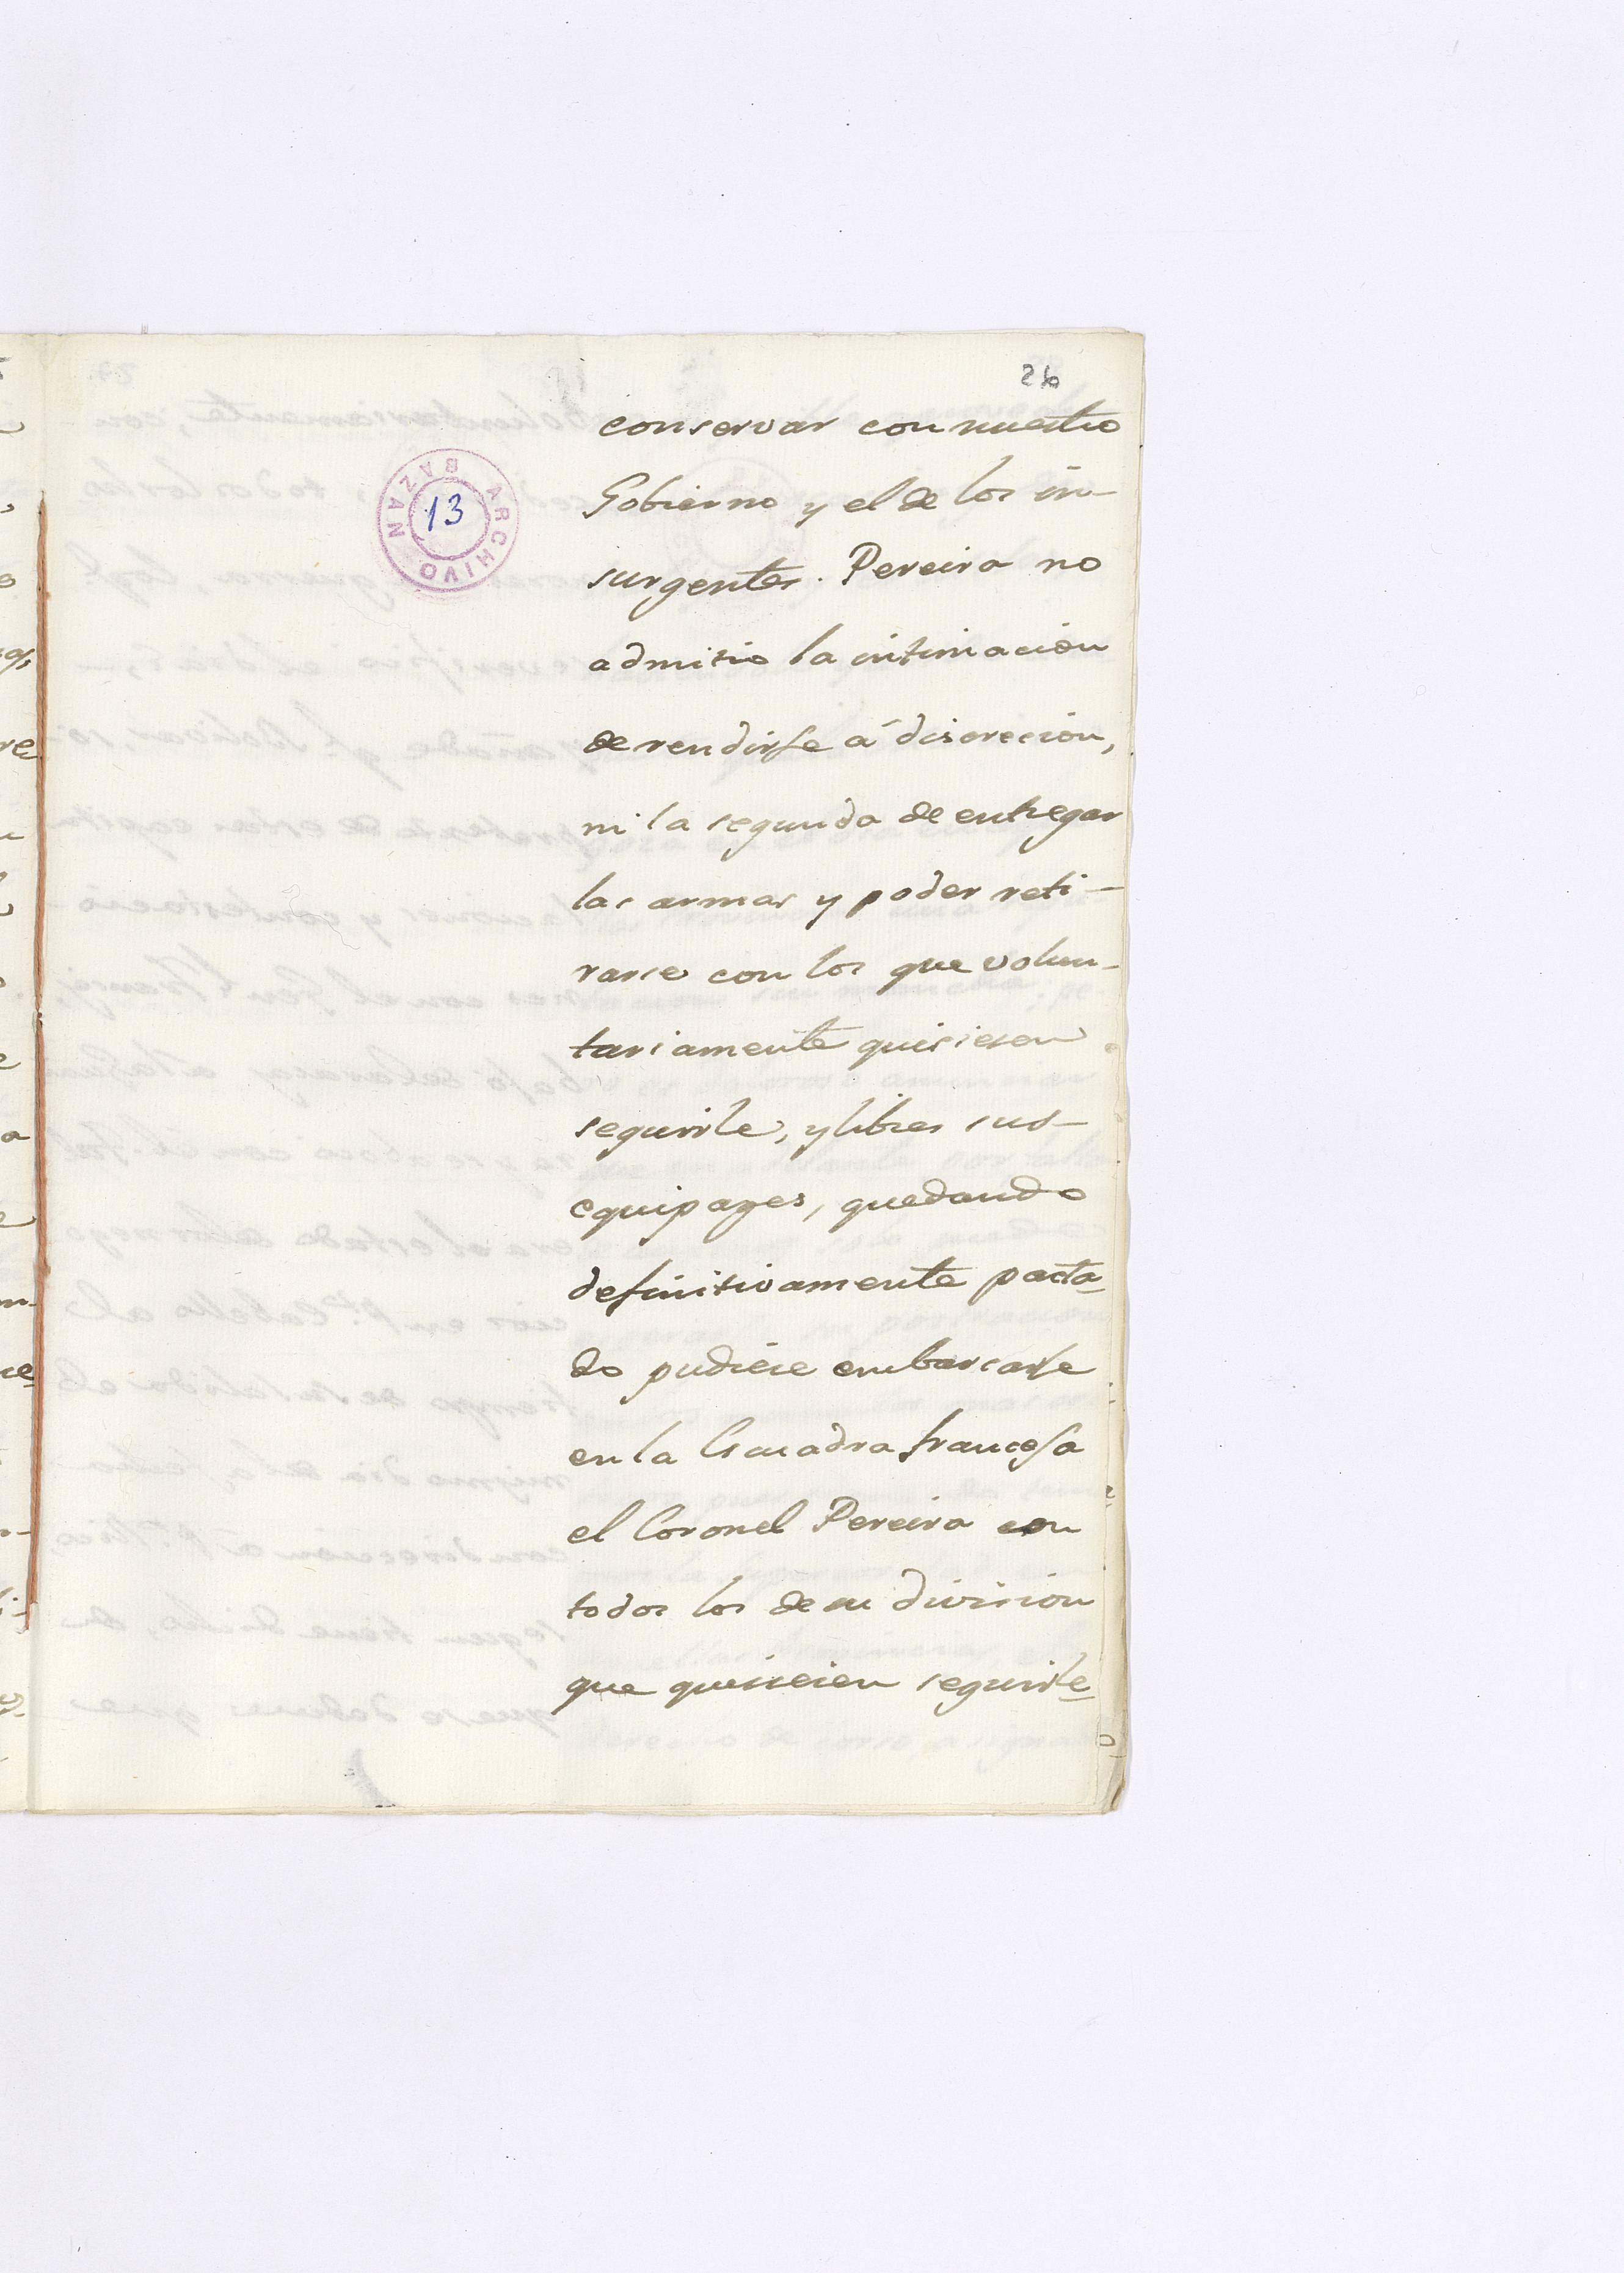 26
conservar con nuestro
BAZAN ARCHIVO
13
Gobierno y el de los in-
surgentes. Pereira no
admitio la intimacion
de rendirse á discrecion,
ni la segunda de entregar
las armas y poder reti-
rarse con los que volun-
tariamente quisiesen
seguirle, y libres sus
equipages, quedando
definitivamente pacta-
do pudiese embarcarse
en la Escuadra francesa
el Coronel Pereira con
todos los de su division
que quisiesen seguirle